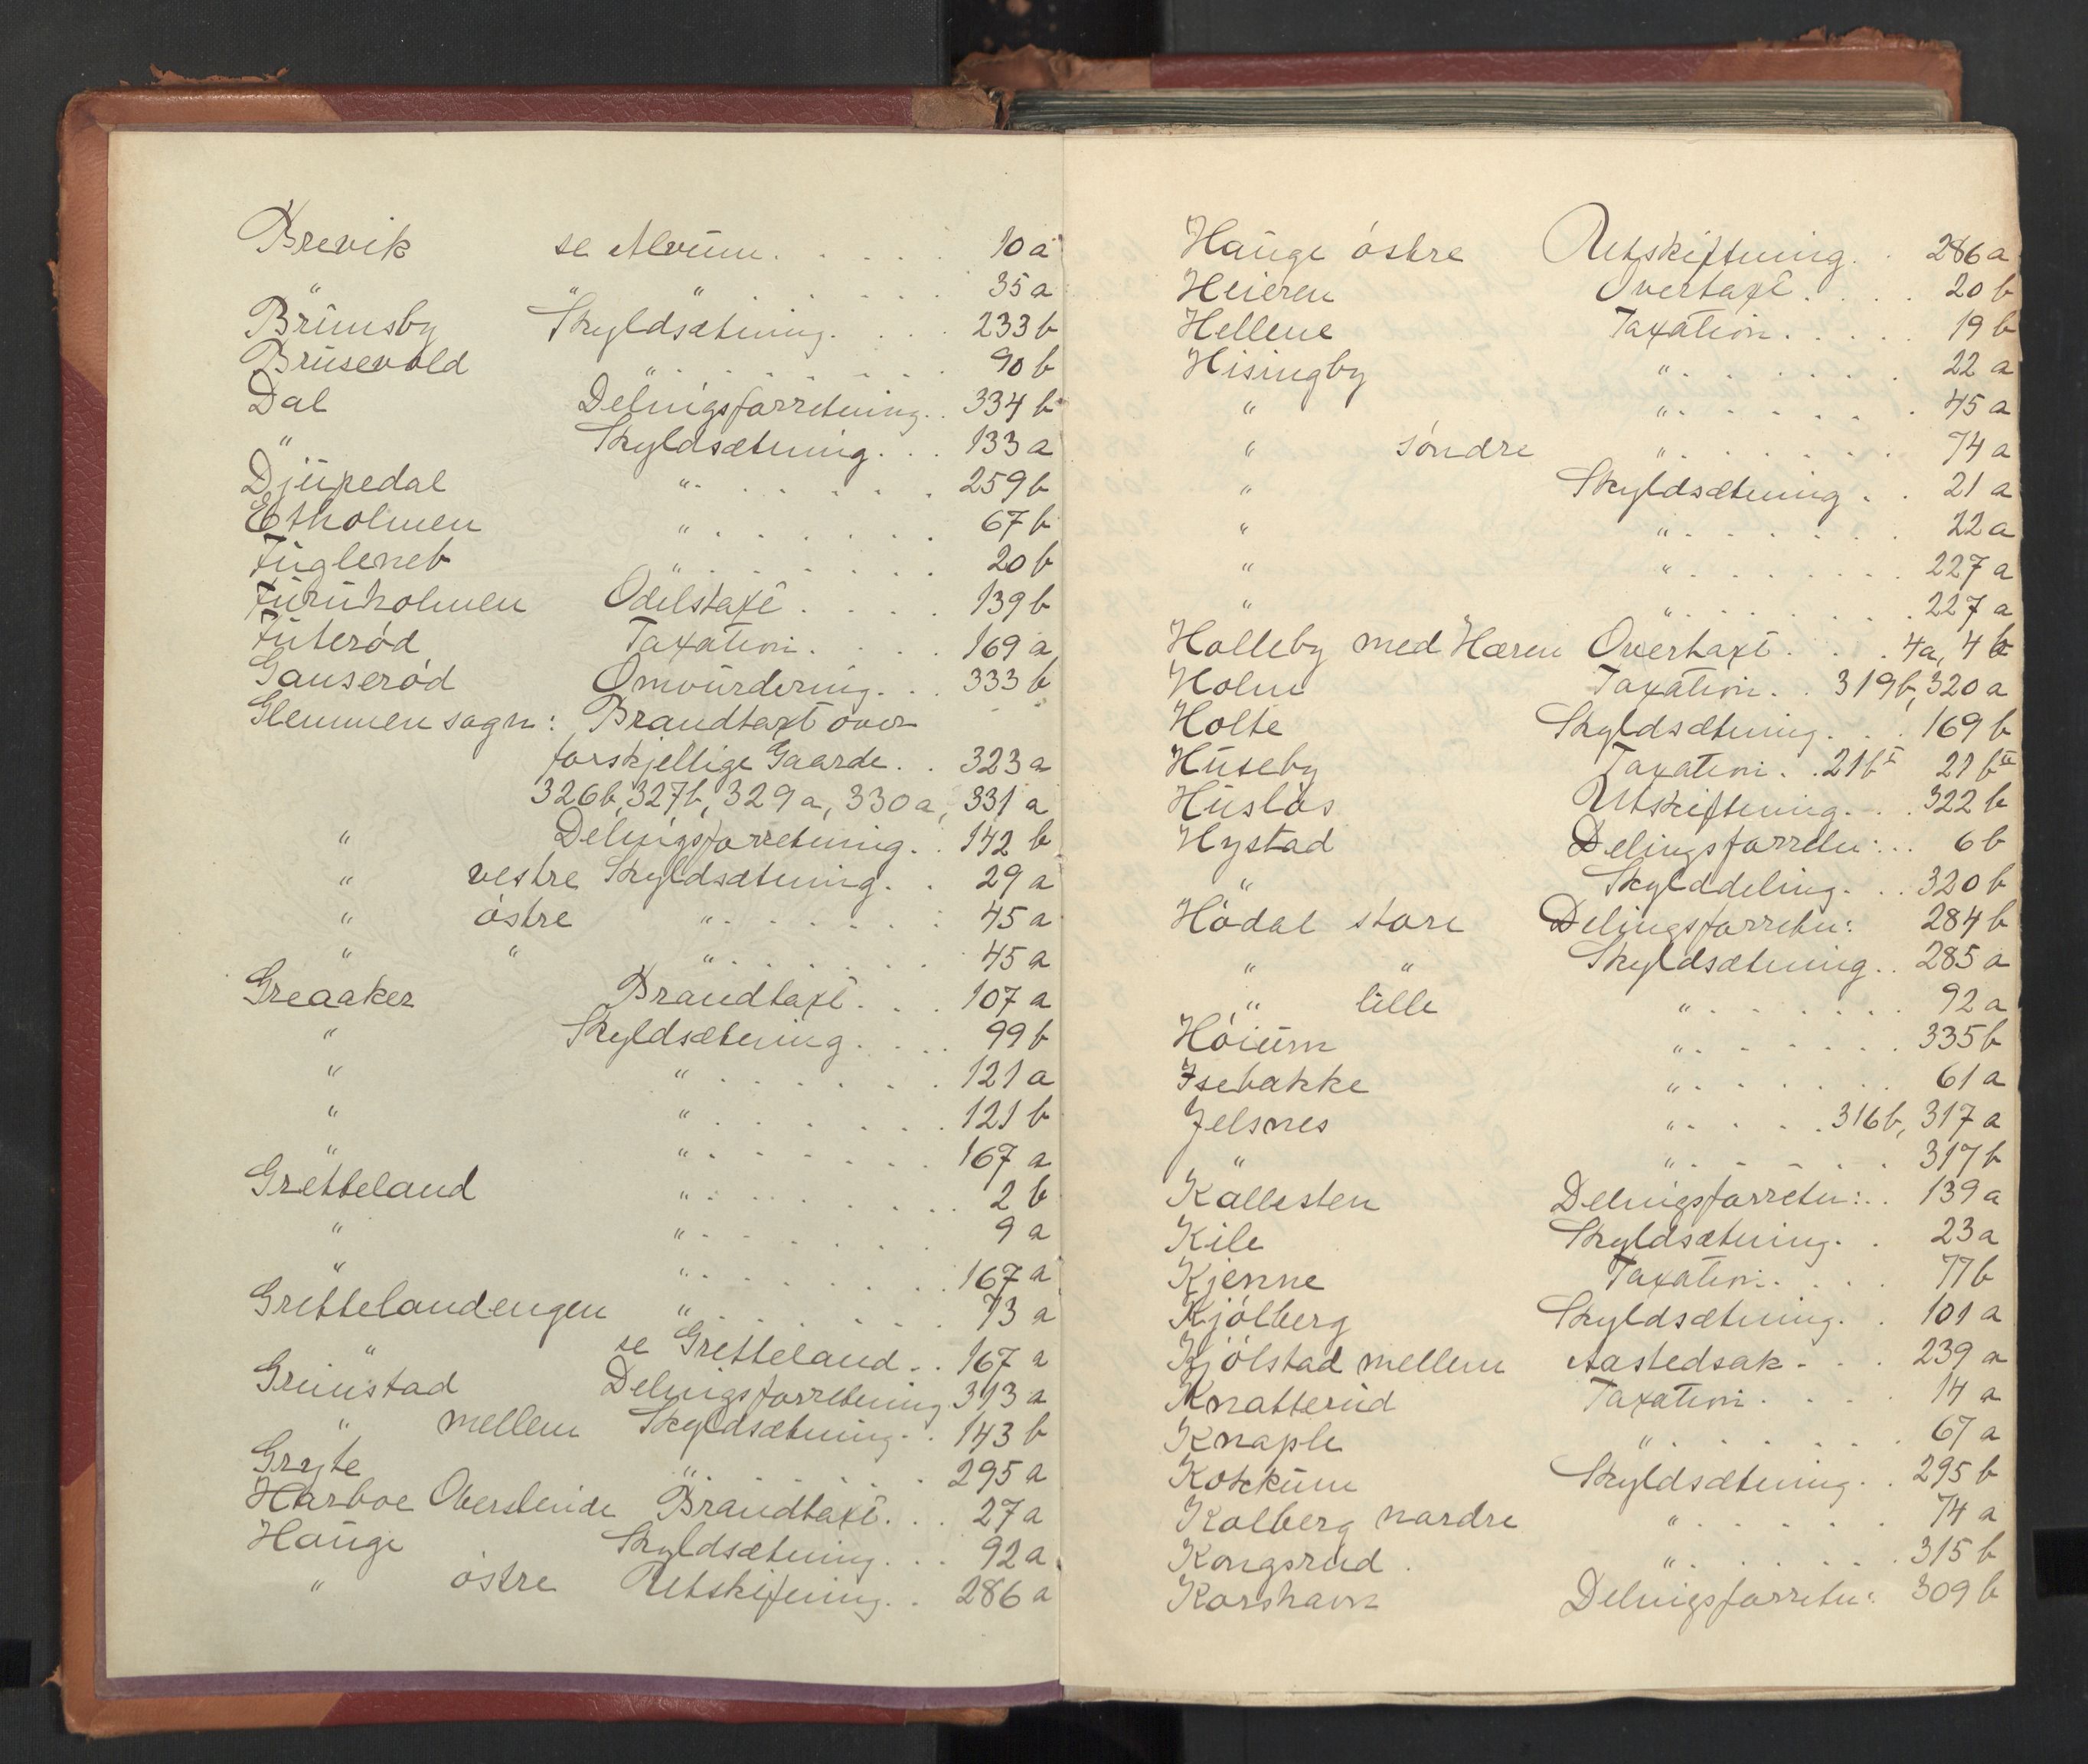 Brevik se Alvum. . . . . 10 a
" " " . . . . . 35 a
Brunsby Skyldsætning. . . . 233 b
Brusevold " . . . . . . . 90 b
Dal Delingsforretning. . 334 b
" Skyldsætning. . . 133 a
Djupedal " . . . . . . 259 b
Etholmen " . . . . . . 67 b
Fugleneb " . . . . . . 20 b
Furuholmen Odelstaxt . . . . 139 b
Futerød Taxation. . . . 169 a
Gauserød Omvurdering. . . 333 b
Glemmen sogn: Brandtaxt over
forskjellige Gaarde. . 323 a
326 b, 327 b, 329 a, 330 a, 331 a
" Delingsforretning. . 142 b
" vestre Skyldsætning. . 29 a
" østre " . . . . . . 45 a
" " " . . . . . . 45 a
Greaaker Brandtaxt. . . 107 a
" Skyldsætning . . . . 99 b
" " . . . . . . 121 a
" " . . . . . . 121 b
" " . . . . . . 167 a
Gretteland " . . . . . . 2 b
" " . . . . . . 9 a
" " . . . . . . 167 a
Grettelandengen " . . . . . . 73 a
" se Gretteland . . 167 a
Grimstad Delingsforretning 313 a
" mellem Skyldsætning. . 143 b
Gryte " . . . . . . 295 a
Harboe Oberstinde Brandtaxt. . . 27 a
Hauge Skyldsætning. . . 92 a
" østre Utskifning. . 286 a
Hauge østre Utskiftning. . 286 a
Heieren Overtaxt . . . . 20 b
Hellene Taxation. . . . . 19 b
Hisingby " . . . . . . 22 a
" " . . . . . . 45 a
" søndre " . . . . . . 74 a
" Skyldsætning . . 21 a
" " . . . . . . 22 a
" " . . . . . . 227 a
" " . . . . . . 227 a
Holleby med Hæren Overtaxt . . . 4a, 4 b
Holm Taxation. . 319 b, 320 a
Holte Skyldsætning. . . 169 b
Huseby Taxation. . 21 b I 21 b II
Huslos Utskiftning. . . 322 b
Hystad Delingsforretn: . . 6 b
" Skylddeling. . . 320 b
Hødal store Delingsforretn: 284 b
" " Skyldsætning. . 285 a
" lille " . . . . . . 92 a
Høium " . . . . . . 335 b
Isebakke " . . . . . . 61 a
Jelsnes " . . . . 316 b, 317 a
" " . . . . . . 317 b
Kallesten Delingsforretn: . . 139 a
Kile Skyldsætning. . 23 a
Kjenne Taxation. . . . 77 b
Kjølberg Skyldsætning. . 101 a
Kjølstad mellem Aastedsak - . . 239 a
Knatterud Taxation . . . 14 a
Knaple " . . . . . . 67 a
Kokkum Skyldsætning. . 295 b
Kolberg nordre " . . . . . 74 a
Kongsrud . " . . . . . . 315 b
Korshavn Delingsforretn: 309 b